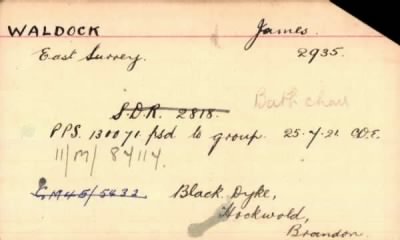 WALDOCK James.
East Surrey. 2935.
S.D.R. 2818.
Bath chair
PPS. 130071 psd to group. 25.7.21 C.D.E.
11/M/84114.
G.M45/5432 Black Dyke,
Hockwold,
Brandon.